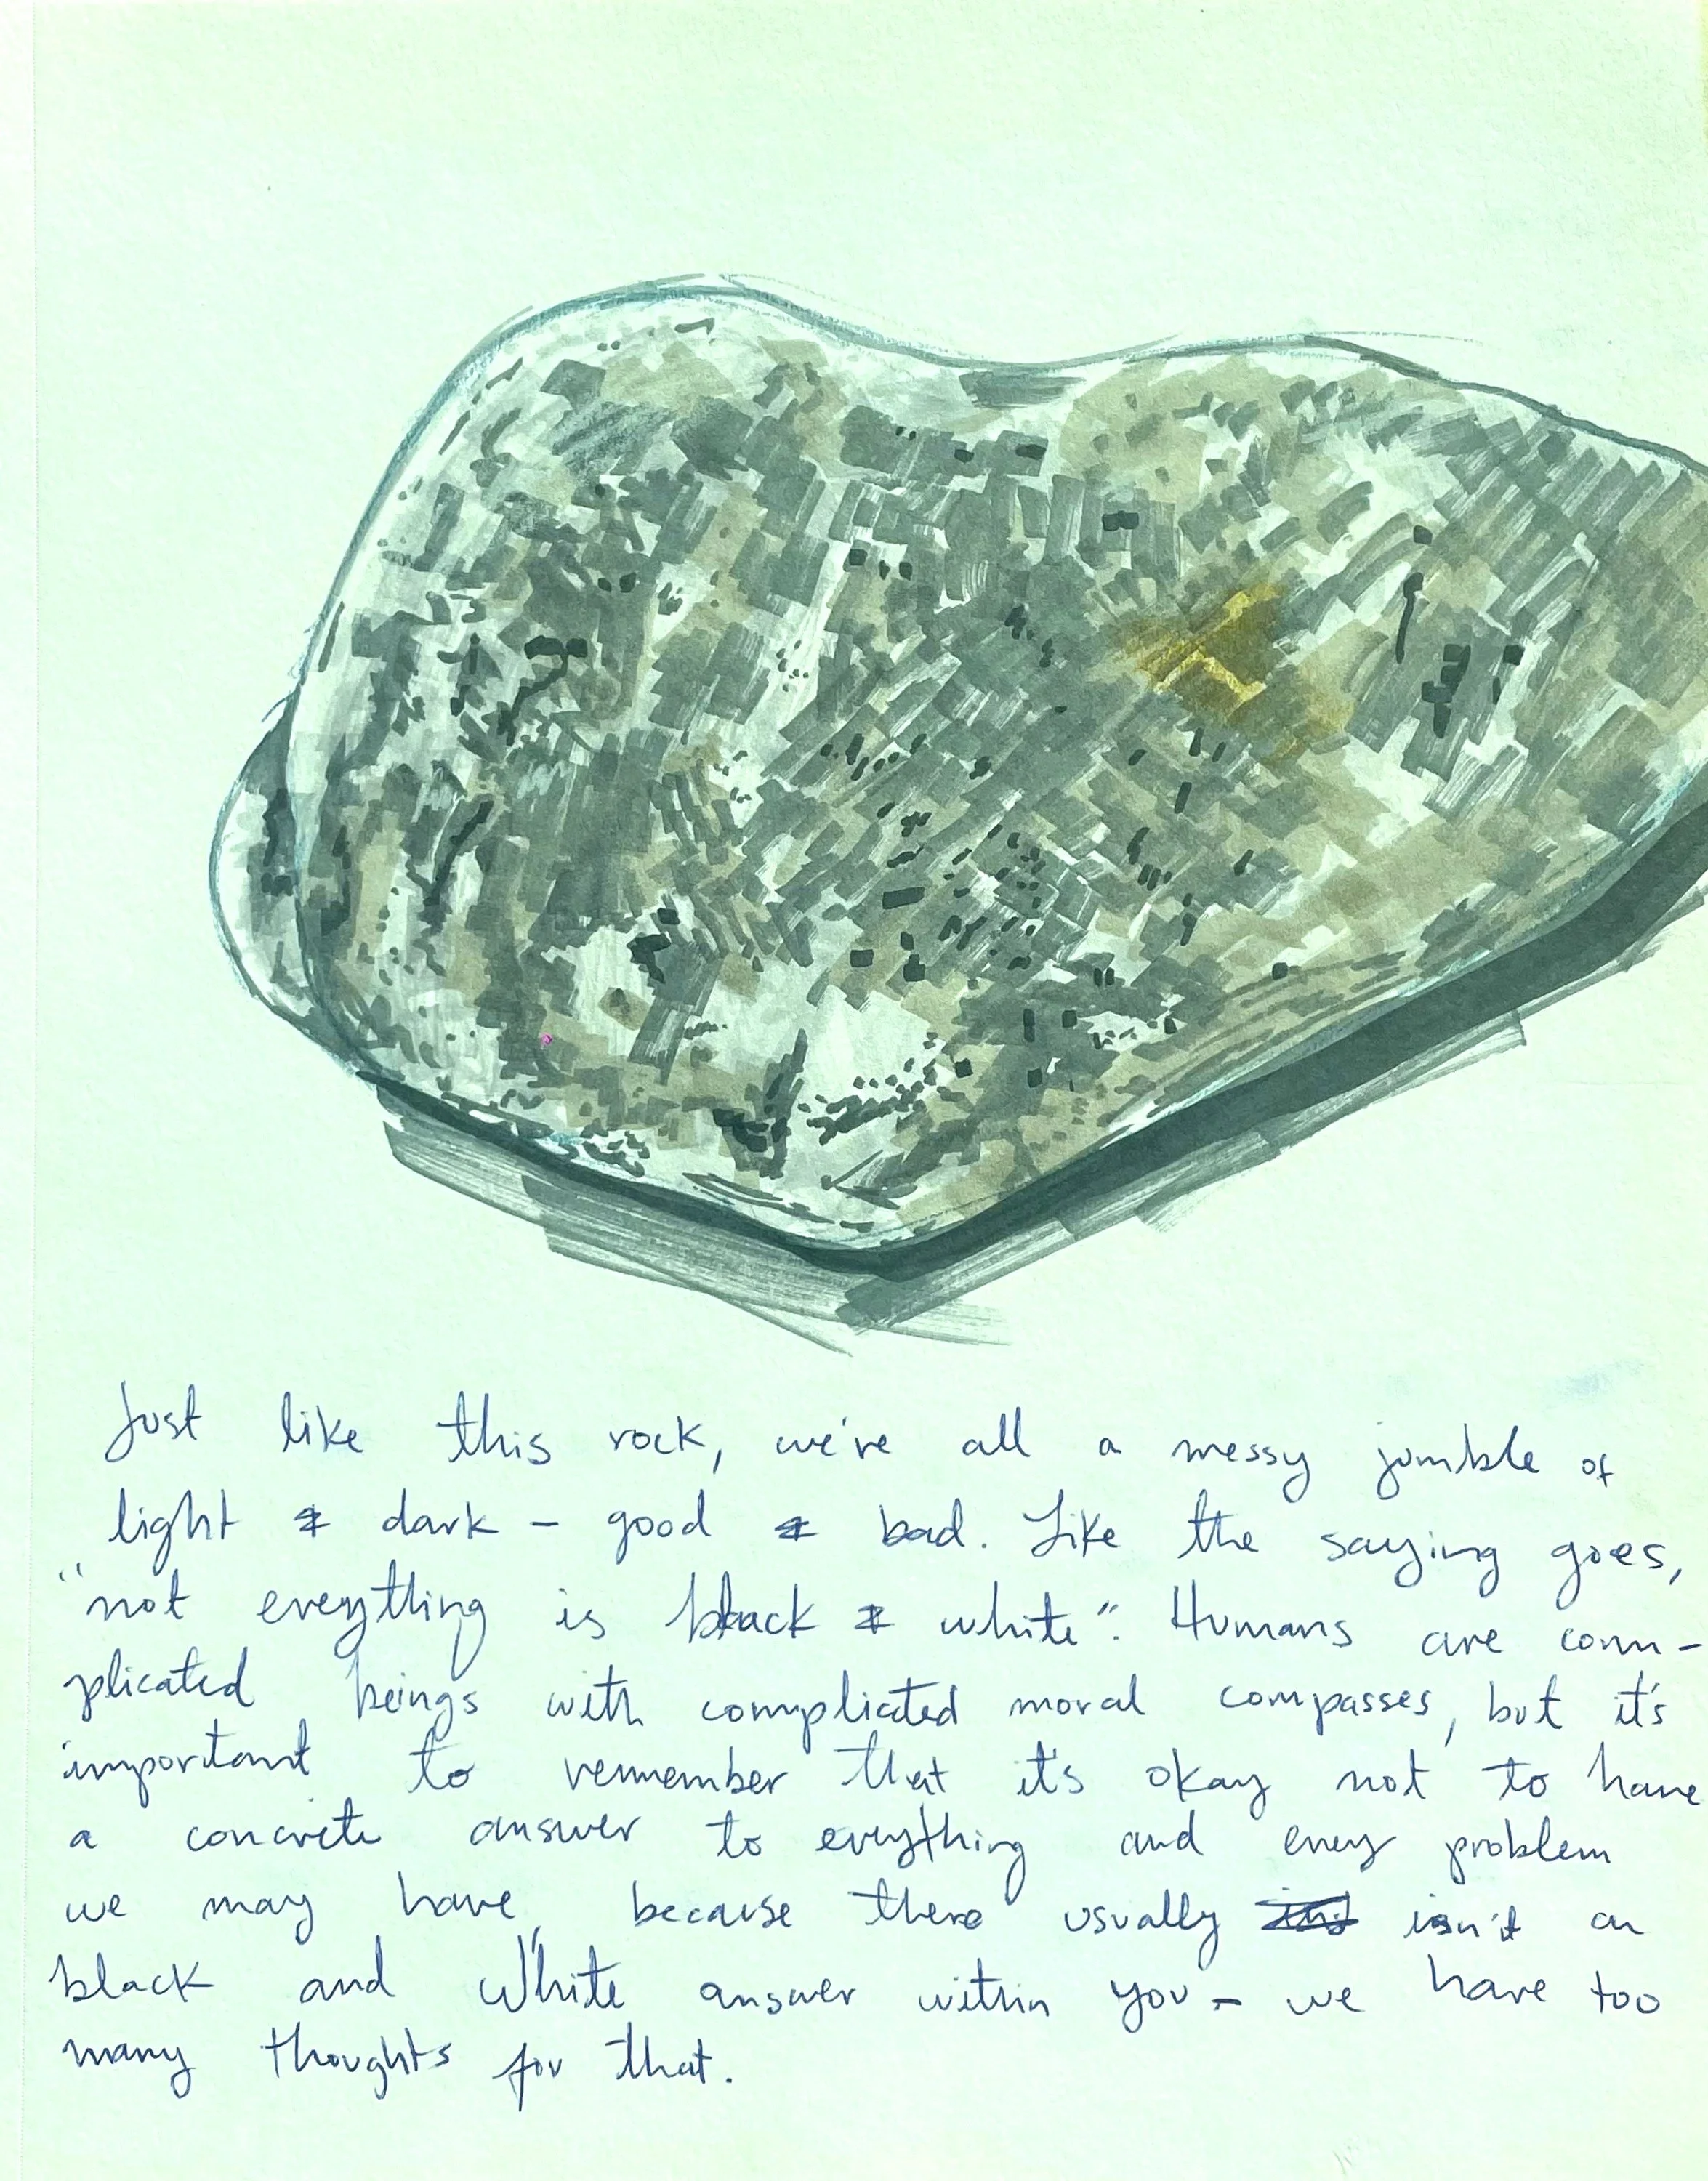 Just like this rock, we're all a messy jumble of
light & dark – good & bad. Like the saying goes,
"not everything is black & white". Humans are com-
plicated beings with complicated moral compasses, but it's
important to remember that it's okay not to have
a concrete answer to everything and every problem
we may have, because there usually isn't an
black and white answer within you – we have too
many thoughts for that.